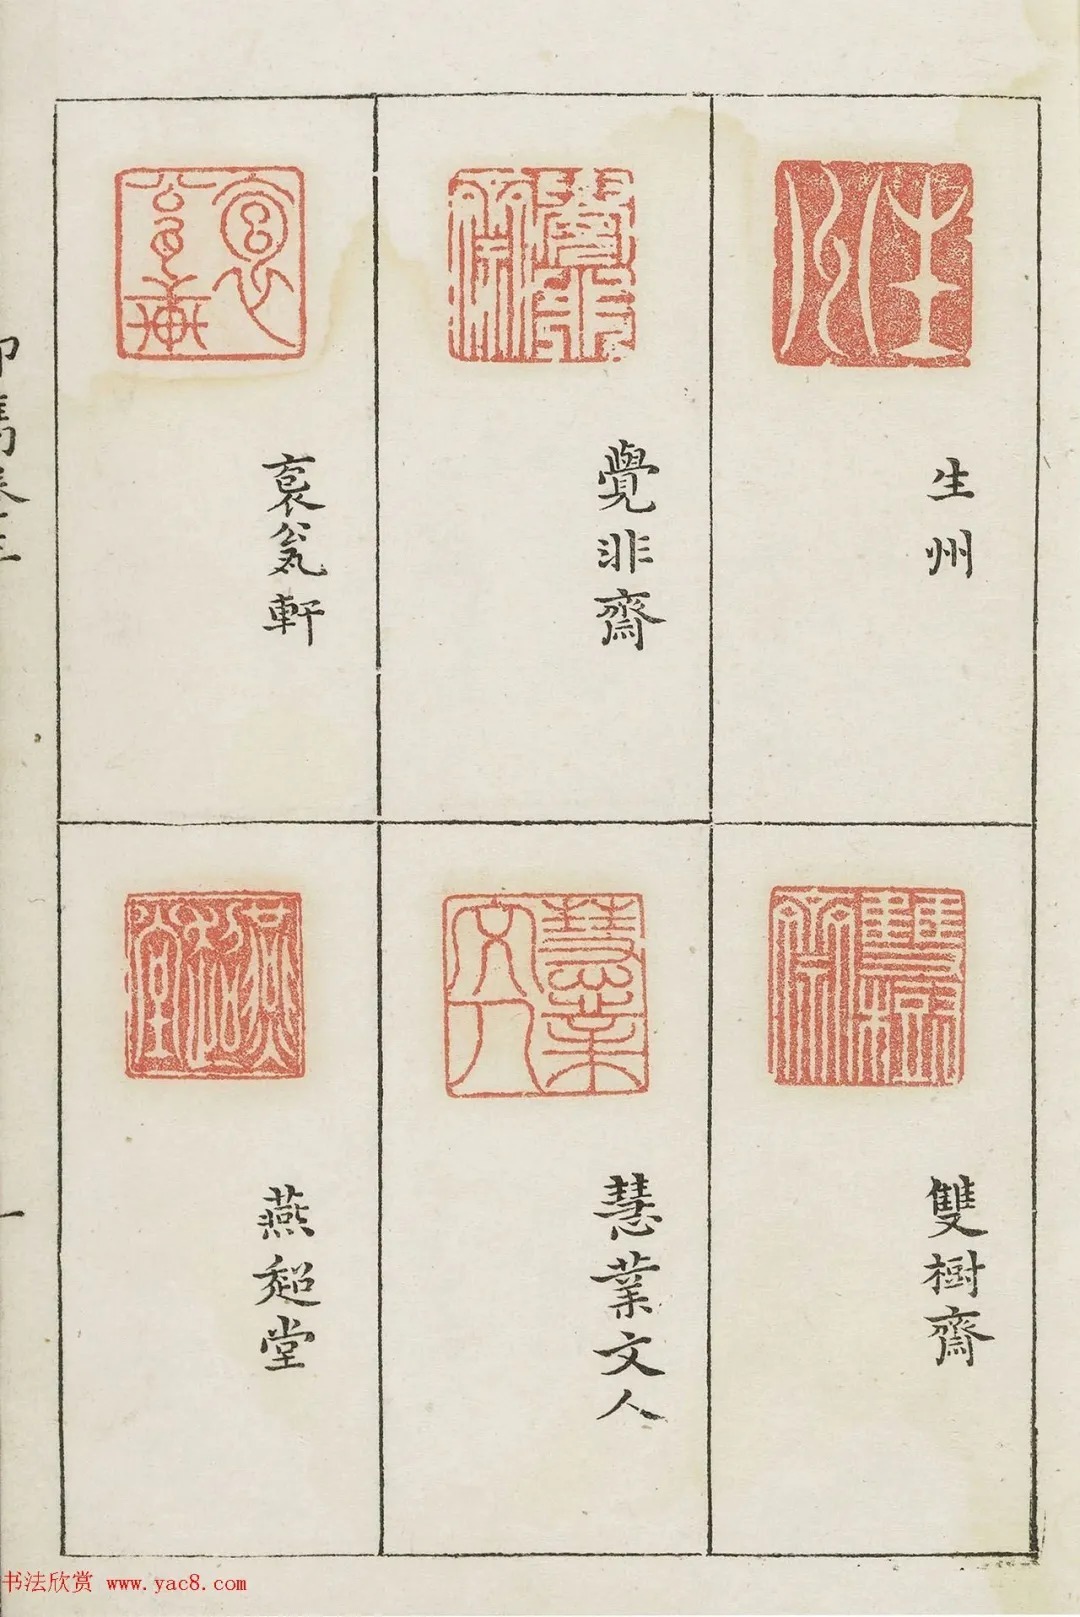 生州
覺非齋
瓮軒
雙樹齋
慧業文人
燕超堂
印雋卷三
一
书法欣赏 www.yac8.com